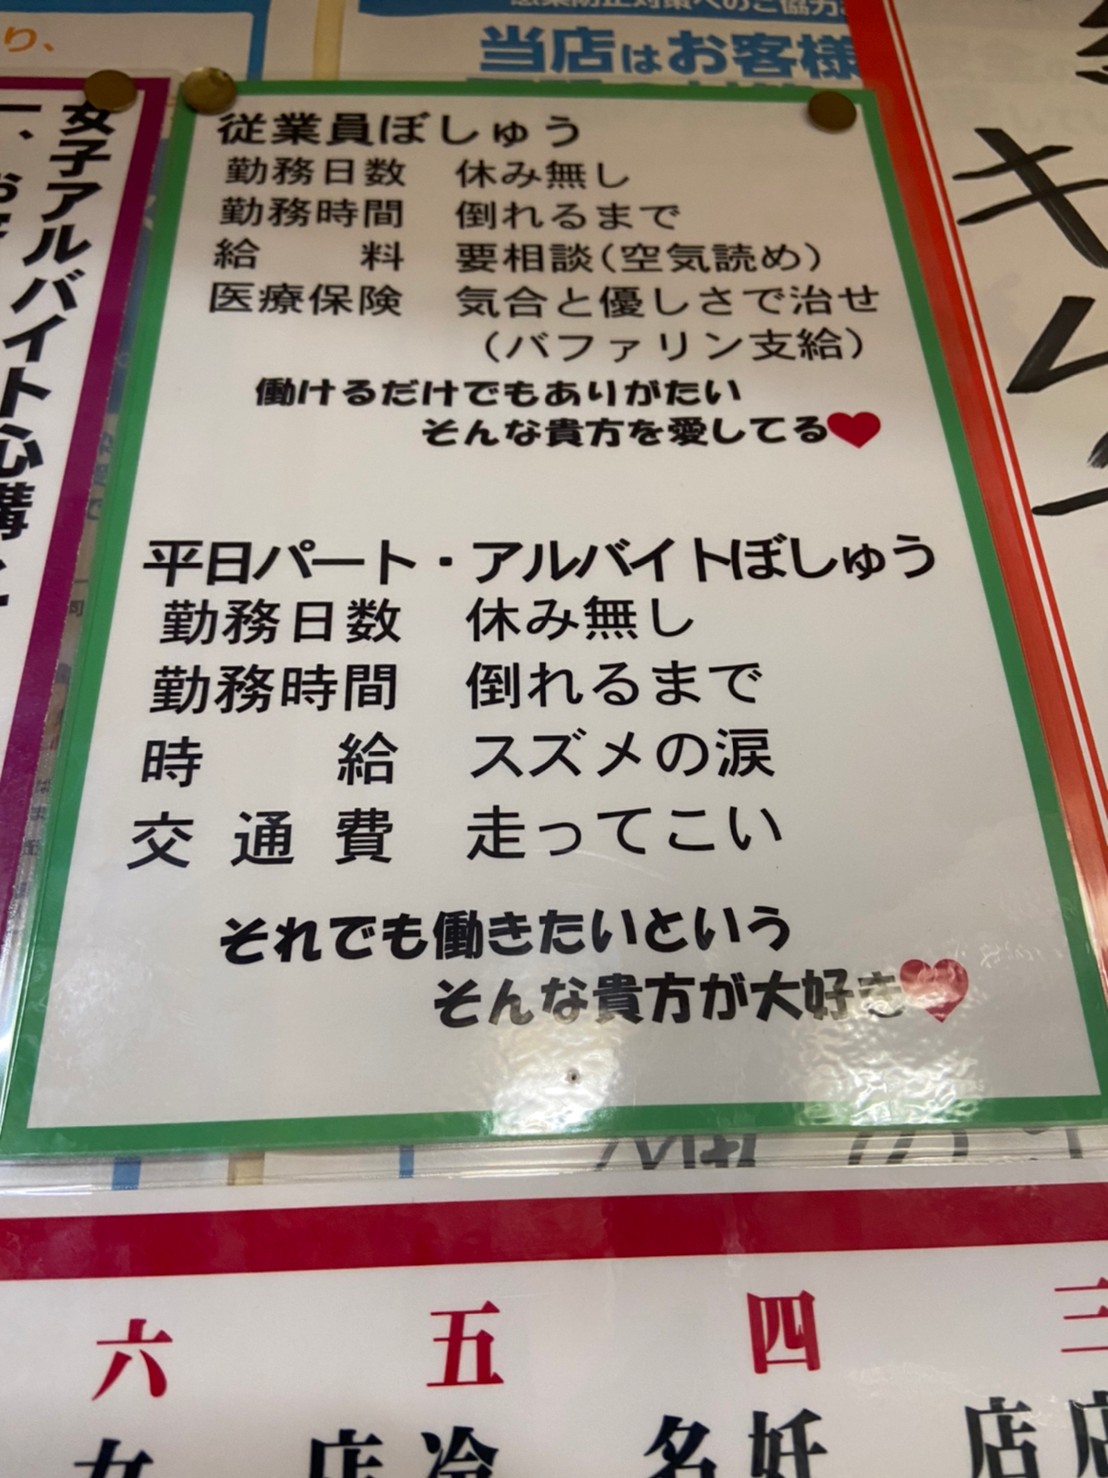 当店はお客様
従業員ぼしゅう
勤務日数 休み無し
勤務時間 倒れるまで
給 料 要相談(空気読め)
医療保険 気合と優しさで治せ
(バファリン支給)
働けるだけでもありがたい
そんな貴方を愛してる❤
平日パート・アルバイトぼしゅう
勤務日数 休み無し
勤務時間 倒れるまで
時 給 スズメの涙
交 通 費 走ってこい
それでも働きたいという
そんな貴方が大好き❤
女子アルバイト心構え
キムチ
三
四
五
六